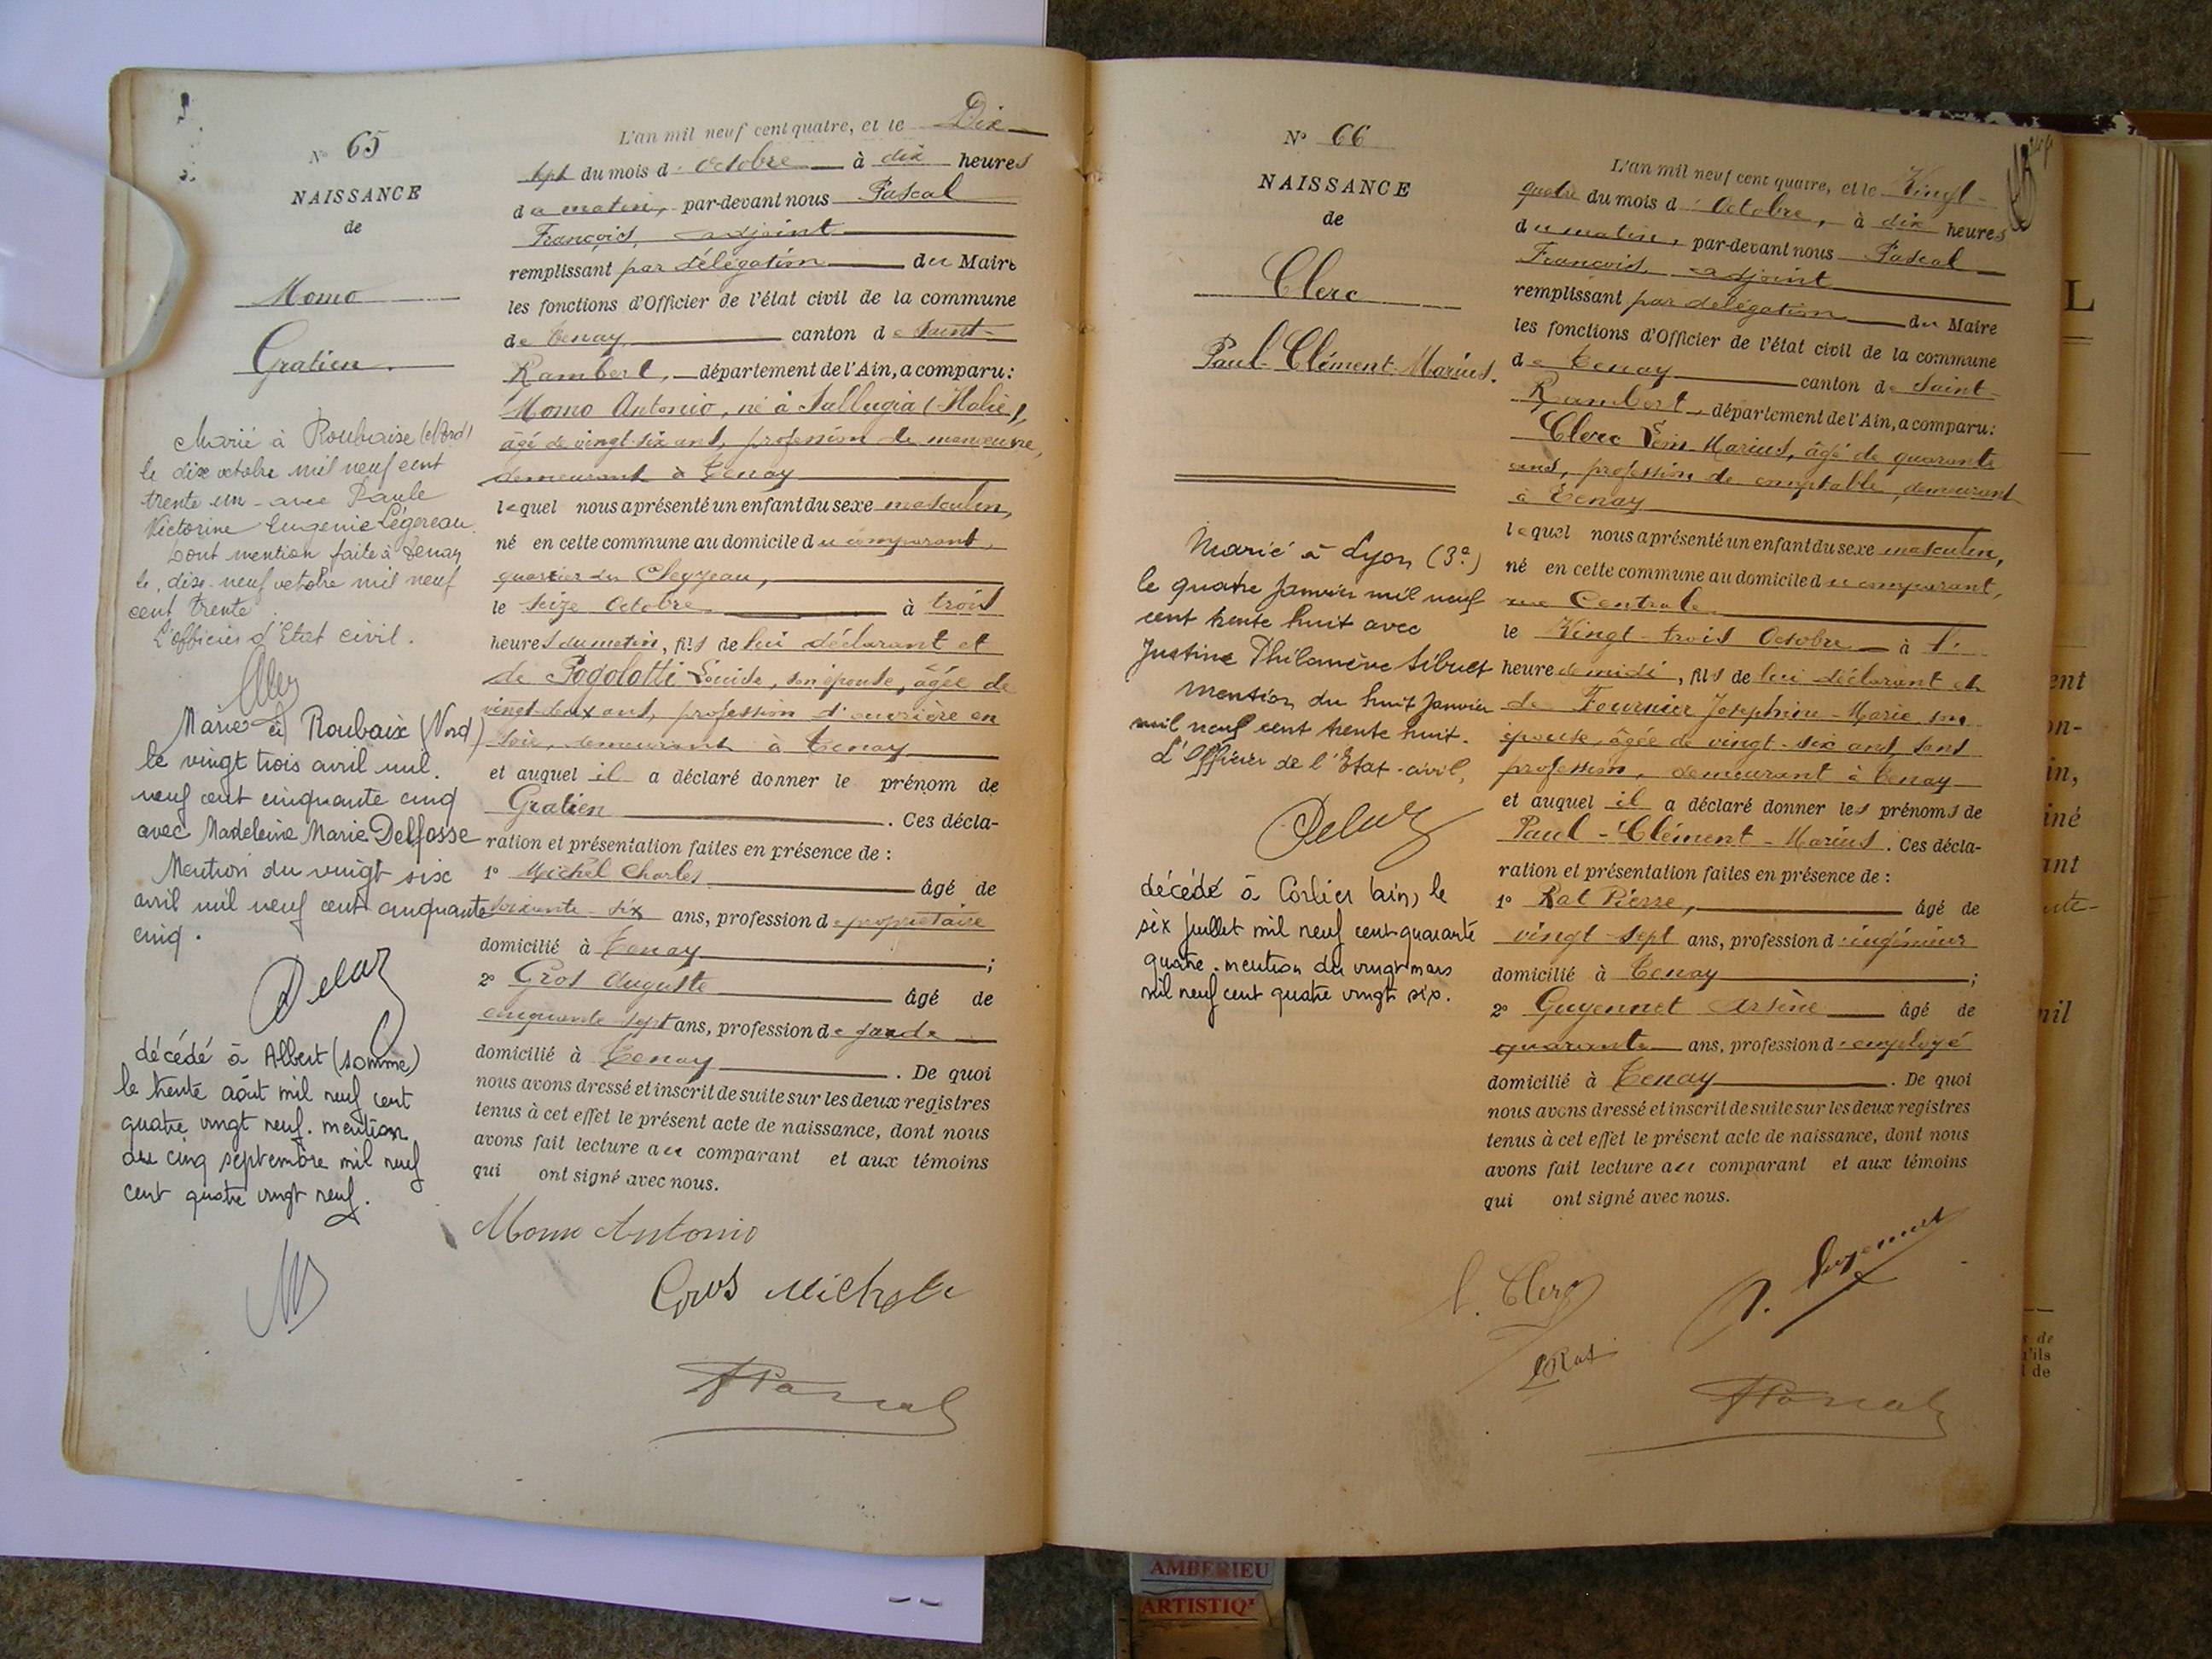 N° 65
NAISSANCE
de
Momo
Gratien.
Marié à Roubaise (Nord)
le dix octobre mil neuf cent
trente un - avec Paule
Victorine Eugenie Légereau
Dont mention faite à Tenay
le dix-neuf octobre mil neuf
cent trente
L'officier d'Etat civil.
Marié à Roubaix (Nord)
le vingt trois avril mil.
neuf cent cinquante cinq
avec Madeleine Marie Delfosse
Mention du vingt six
avril mil neuf cent cinquante
cinq.
Delaz
décédé à Albert (somme)
le trente août mil neuf cent
quatre vingt neuf. mention
du cinq septembre mil neuf
cent quatre vingt neuf.
L'an mil neuf cent quatre, et le Dix-
sept du mois d'Octobre à dix heures
du matin, par-devant nous Pascal
François, adjoint
remplissant par délégation du Maire
les fonctions d'Officier de l'état civil de la commune
de Tenay canton de Saint-
Rambert, département de l'Ain, a comparu:
Momo Antonio, né à Sallugia (Italie),
âgé de vingt-six ans, profession de manœuvre,
demeurant à Tenay
lequel nous a présenté un enfant du sexe masculin,
né en cette commune au domicile du comparant,
quartier du Cleyzeau,
le seize Octobre à trois
heures du matin, fils de lui déclarant et
de Pogolotti Louise, son épouse, âgée de
vingt-deux ans, profession d'ouvrière en
soie, demeurant à Tenay
et auquel il a déclaré donner le prénom de
Gratien. Ces décla-
ration et présentation faites en présence de :
1° Michel Charles âgé de
soixante-six ans, profession de propriétaire
domicilié à Tenay;
2° Gros Auguste âgé de
cinquante-sept ans, profession de garde
domicilié à Tenay. De quoi
nous avons dressé et inscrit de suite sur les deux registres
tenus à cet effet le présent acte de naissance, dont nous
avons fait lecture au comparant et aux témoins
qui ont signé avec nous.
Momo Antonio
Gros Michele
FPascal
N° 66
NAISSANCE
de
Clerc
Paul-Clément-Marius.
Marié à Lyon (3e)
le quatre Janvier mil neuf
cent trente huit avec
Justine Philomène Sibuet
Mention du huit Janvier
mil neuf cent trente huit.
L'Officier de l'Etat-civil,
Delaz
décédé à Corlier (ain) le
six juillet mil neuf cent quarante
quatre. mention du vingt mars
mil neuf cent quatre vingt six.
L'an mil neuf cent quatre, et le Vingt-
quatre du mois d'Octobre, à dix heures
du matin, par-devant nous Pascal
François, adjoint
remplissant par délégation du Maire
les fonctions d'Officier de l'état civil de la commune
de Tenay canton de Saint-
Rambert, département de l'Ain, a comparu:
Clerc Marius, âgé de quarante
ans, profession de comptable, demeurant
à Tenay
lequel nous a présenté un enfant du sexe masculin,
né en cette commune au domicile du comparant,
rue Centrale
le Vingt-trois Octobre à l'
heure de midi, fils de lui déclarant et
de Fournier Joséphine-Marie, son
épouse, âgée de vingt-six ans, sans
profession, demeurant à Tenay
et auquel il a déclaré donner les prénoms de
Paul-Clément-Marius. Ces décla-
ration et présentation faites en présence de :
1° Rat Pierre, âgé de
vingt-sept ans, profession d'ingénieur
domicilié à Tenay;
2° Guyennet Arsène âgé de
quarante ans, profession d'employé
domicilié à Tenay. De quoi
nous avons dressé et inscrit de suite sur les deux registres
tenus à cet effet le présent acte de naissance, dont nous
avons fait lecture au comparant et aux témoins
qui ont signé avec nous.
Clerc
PRat
FPascal
L
ent
on-
in,
iné
ant
ute-
nil
s de
u'ils
t de
AMBERIEU
ARTISTIQ